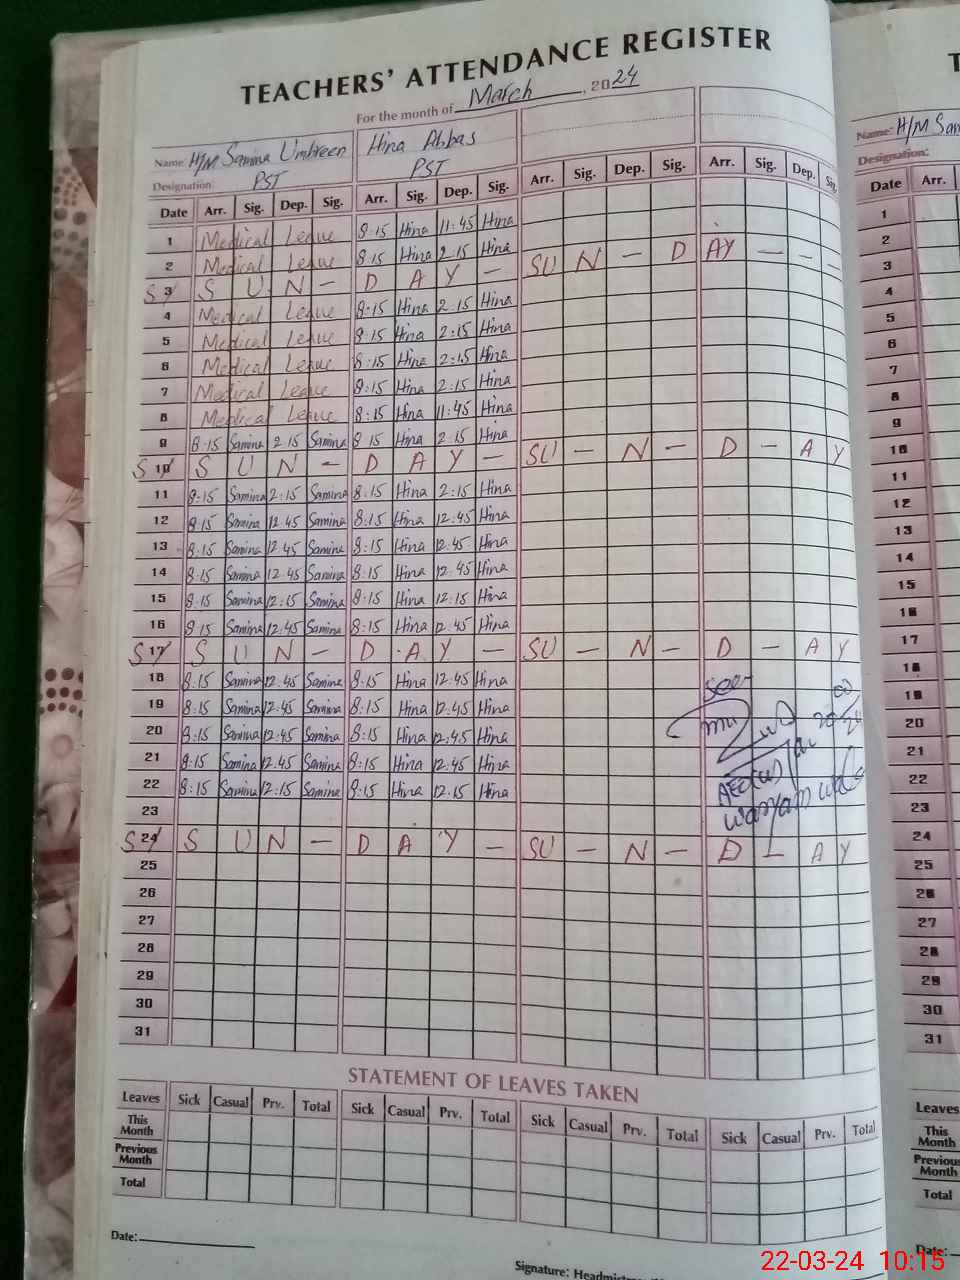 TEACHERS' ATTENDANCE REGISTER
For the month of March, 2024
Name: H/M Samina Umbreen Hina Abbas
Designation: PST PST
Date Arr. Sig. Dep. Sig. Arr. Sig. Dep. Sig. Arr. Sig. Dep. Sig. Arr. Sig. Dep. Sig.
1 Medical Leave 8:15 Hina 11:45 Hina
2 Medical Leave 8:15 Hina 2:15 Hina
3 S U N - D A Y - SU N - D AY - - -
4 Medical Leave 8:15 Hina 2:15 Hina
5 Medical Leave 8:15 Hina 2:15 Hina
6 Medical Leave 8:15 Hina 2:15 Hina
7 Medical Leave 8:15 Hina 2:15 Hina
8 Medical Leave 8:15 Hina 11:45 Hina
9 8:15 Samina 2:15 Samina 8:15 Hina 2:15 Hina
10 S U N - D A Y - SU - N - D - A Y
11 8:15 Samina 2:15 Samina 8:15 Hina 2:15 Hina
12 8:15 Samina 12:45 Samina 8:15 Hina 12:45 Hina
13 8:15 Samina 12:45 Samina 8:15 Hina 12:45 Hina
14 8:15 Samina 12:45 Samina 8:15 Hina 12:45 Hina
15 8:15 Samina 12:15 Samina 8:15 Hina 12:15 Hina
16 8:15 Samina 12:45 Samina 8:15 Hina 12:45 Hina
17 S U N - D A Y - SU - N - D - A Y
18 8:15 Samina 12:45 Samina 8:15 Hina 12:45 Hina
19 8:15 Samina 12:45 Samina 8:15 Hina 12:45 Hina
20 8:15 Samina 12:45 Samina 8:15 Hina 12:45 Hina
21 8:15 Samina 12:45 Samina 8:15 Hina 12:45 Hina
22 8:15 Samina 12:15 Samina 8:15 Hina 12:15 Hina
23
24 S U N - D A Y - SU - N - D - A Y
25
26
27
28
29
30
31
Seen
AEO(W)
STATEMENT OF LEAVES TAKEN
Leaves Sick Casual Prv. Total Sick Casual Prv. Total Sick Casual Prv. Total Sick Casual Prv. Total
This Month
Previous Month
Total
Date:
Signature:
Name: H/M
Designation:
Date Arr.
1
2
3
4
5
6
7
8
9
10
11
12
13
14
15
16
17
18
19
20
21
22
23
24
25
26
27
28
29
30
31
Leaves
This Month
Previous Month
Total
Date:
22-03-24 10:15